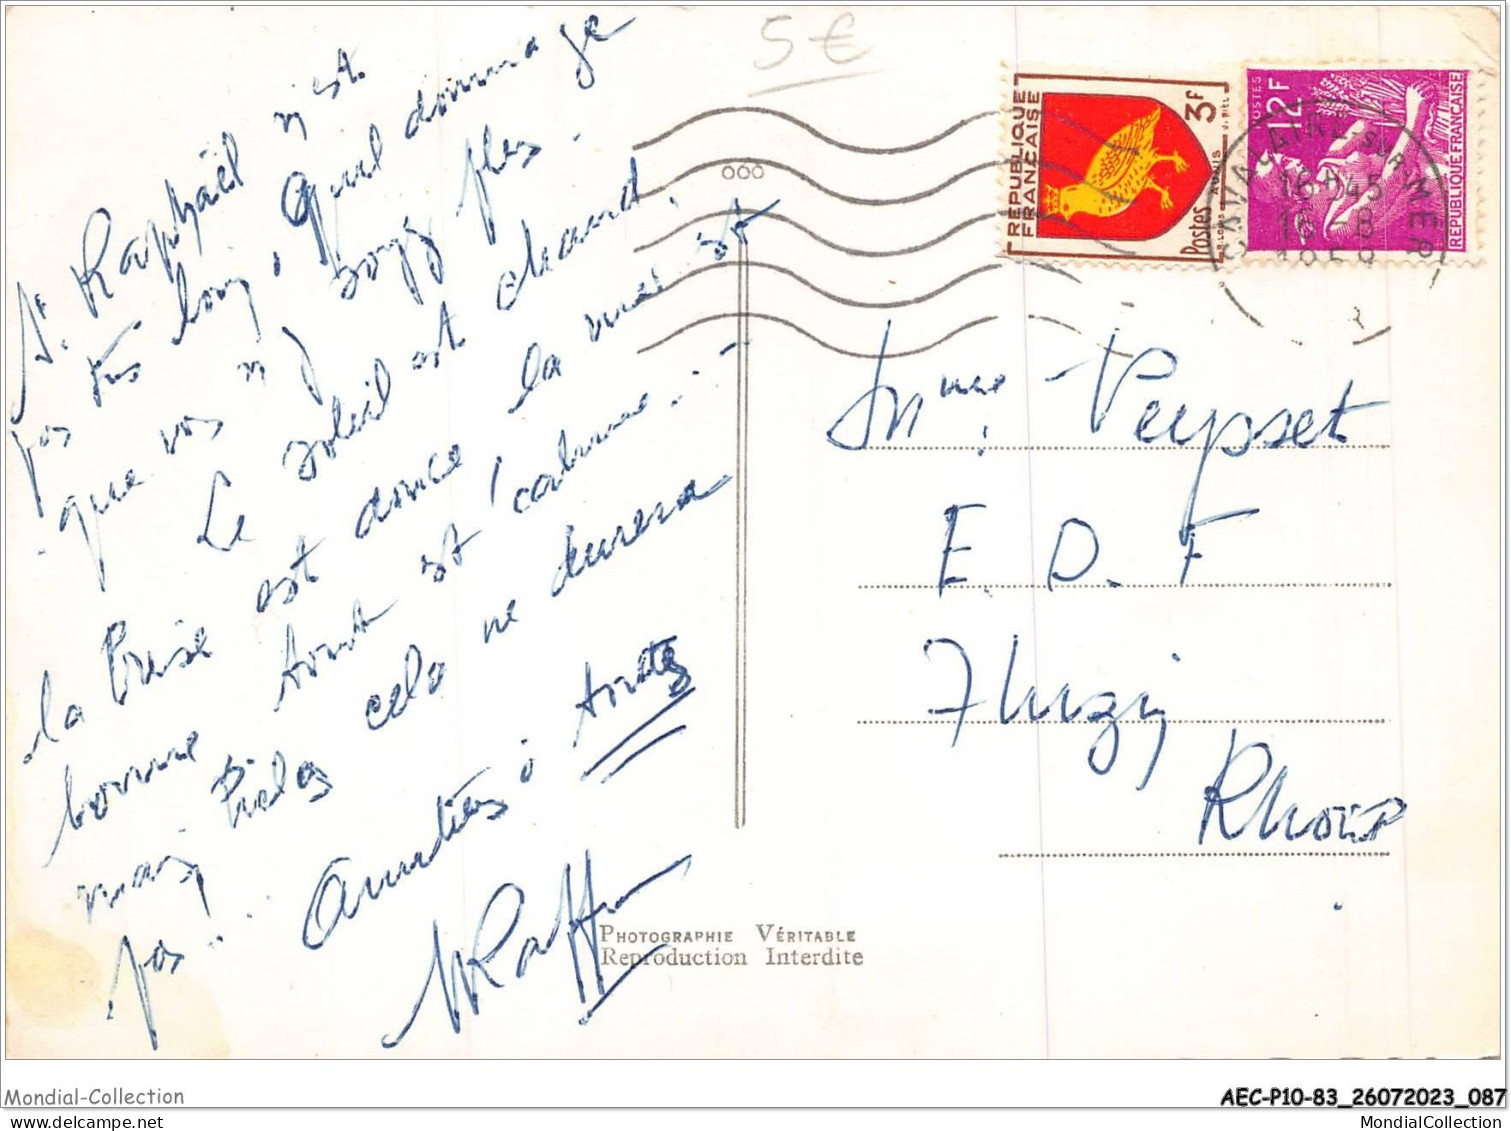 5€
St Raphaël n'est
pas très loin, Quel dommage
que vous n'y soyez plus.
Le soleil est chaud,
la brise est douce, la mer est
bonne tout est calme! -
mais hélas cela ne durera
pas...
Amitiés à toutes
Raff
RÉPUBLIQUE
FRANÇAISE
3F
Postes
AUNIS
POSTES
12F
REPUBLIQUE FRANÇAISE
CAVALAIRE SUR MER
16H45
16 - 8
Mme Peysset
E. D. F
Thizy
Rhône
PHOTOGRAPHIE VÉRITABLE
Reproduction Interdite
Mondial-Collection
AEC-P10-83_26072023_087
MondialCollection